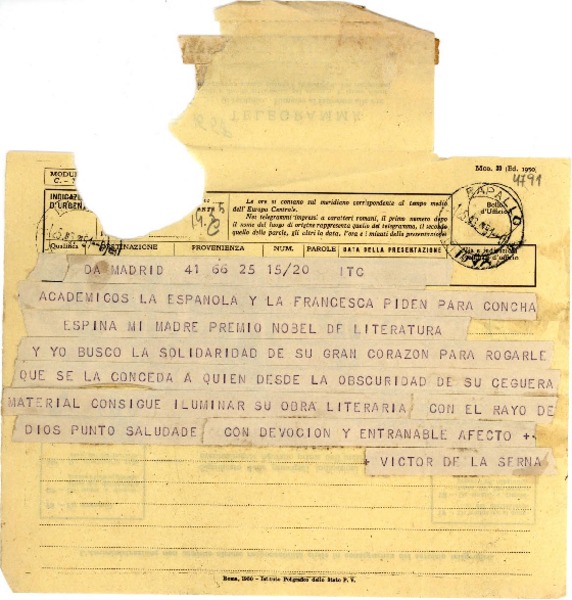 TELEGRAMME
Mod. 33 (Ed. 1950)
4791
MODUL
C. -
INDICAZIO
D'URGENZ
Le ore si contano sul meridiano corrispondente al tempo medio
dell'Europa Centrale.
Nei telegrammi impressi a caratteri romani, il primo numero dopo
il nome del luogo di origine rappresenta quello del telegramma, il secondo
quello delle parole, gli altri la data, l'ora e i minuti della presentazione.
RAPALLO
Bollo
d'Ufficio
Qualifica
DESTINAZIONE PROVENIENZA NUM. PAROLE DATA DELLA PRESENTAZIONE
DA MADRID 41 66 25 15/20 ITC
ACADEMICOS LA ESPANOLA Y LA FRANCESCA PIDEN PARA CONCHA
ESPINA MI MADRE PREMIO NOBEL DE LITERATURA
Y YO BUSCO LA SOLIDARIDAD DE SU GRAN CORAZON PARA ROGARLE
QUE SE LA CONCEDA A QUIEN DESDE LA OBSCURIDAD DE SU CEGUERA
MATERIAL CONSIGUE ILUMINAR SU OBRA LITERARIA CON EL RAYO DE
DIOS PUNTO SALUDADE CON DEVOCION Y ENTRANABLE AFECTO +
+ VICTOR DE LA SERNA
Roma, 1950 - Istituto Poligrafico dello Stato P. V.